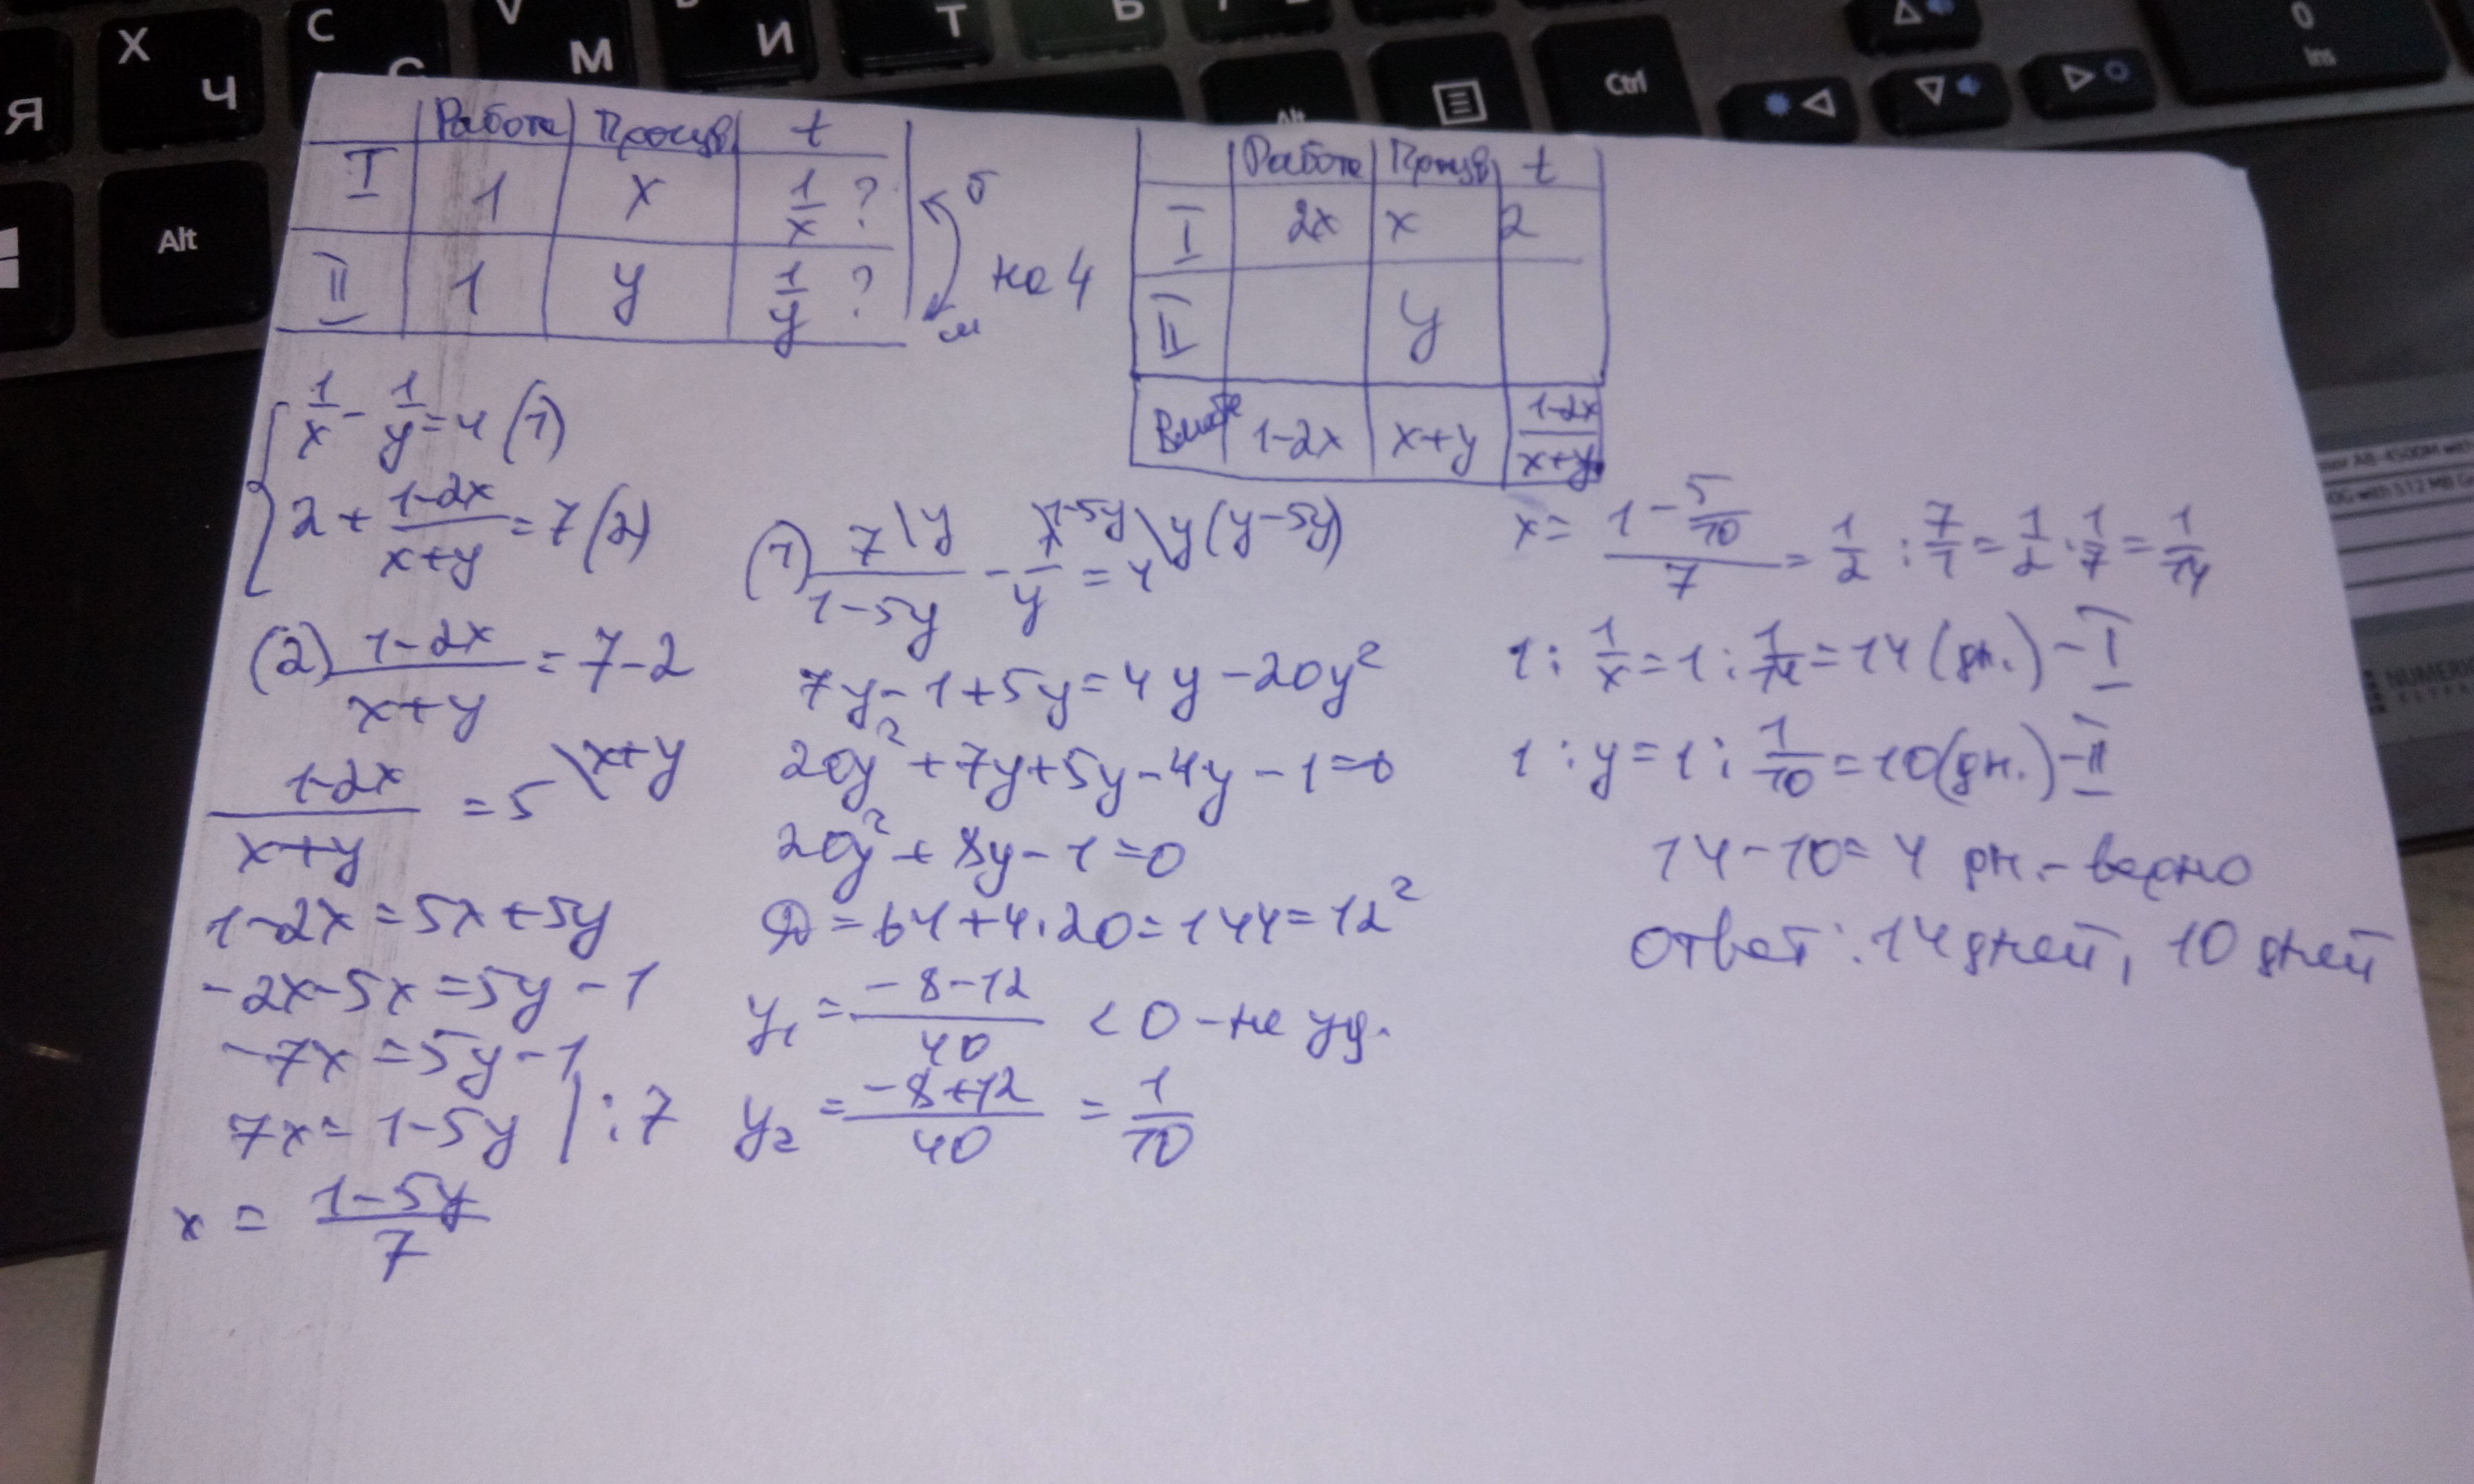 Х Ч
С
V М
И
Т
Ь
Я
Alt
Alt
Ctrl
0
Ins
Работа Произв t
I 1 x 1/x ?
II 1 y 1/y ?
б
на 4
м
Работа Произв t
I 2x x 2
II y
Вместе 1-2x x+y (1-2x)/(x+y)
1/x - 1/y = 4 (1)
2 + (1-2x)/(x+y) = 7 (2)
(2) (1-2x)/(x+y) = 7-2
(1-2x)/(x+y) = 5 \x+y
1-2x = 5x+5y
-2x-5x = 5y-1
-7x = 5y-1
7x = 1-5y | :7
x = (1-5y)/7
(1) 7\y/(1-5y) - 1\1-5y/y = 4 \y(y-5y)
7y-1+5y = 4y-20y²
20y²+7y+5y-4y-1=0
20y²+8y-1=0
D = 64+4·20 = 144 = 12²
y₁ = (-8-12)/40 < 0 - не уд.
y₂ = (-8+12)/40 = 1/10
x = (1 - 5/10)/7 = 1/2 : 7/1 = 1/2 · 1/7 = 1/14
1 : 1/x = 1 : 1/14 = 14 (дн.) - I
1 : y = 1 : 1/10 = 10 (дн.) - II
14-10 = 4 дн. - верно
Ответ: 14 дней, 10 дней
NUMERIC